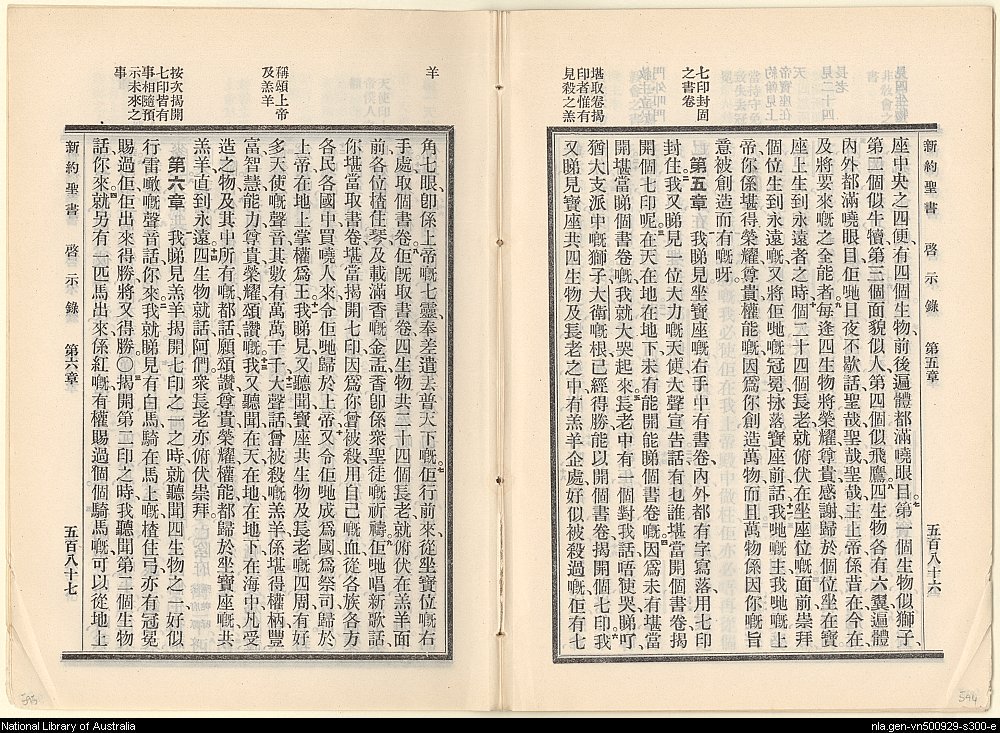 新約聖書 啓示錄 第五章 五百八十六
七印封固
之書卷
堪取卷揭
印者惟有
見殺之羔
座中央之四便有四個生物前後遍體都滿嘵眼目第一個生物似獅子
第二個似牛犢第三個面貌似人第四個似飛鷹四生物各有六翼遍體
內外都滿嘵眼目佢哋日夜不歇話聖哉聖哉聖哉主上帝係昔在今在
及將要來嘅之全能者每逢四生物將榮耀尊貴感謝歸於個位坐在寶
座上生到永遠者之時個二十四個長老就俯伏在坐座位嘅面前崇拜
個位生到永遠嘅又將佢哋嘅冠冕捈落寶座前話我哋嘅主我哋嘅上
帝你係堪得榮耀尊貴權能嘅因爲你創造萬物而且萬物係因你嘅旨
意被創造而有嘅呀
第五章 我睇見坐寶座嘅右手中有書卷內外都有字寫落用七印
封住我又睇見一位大力嘅天使大聲宣告話有乜誰堪當開個書卷揭
開個七印呢在天在地在地下未有能開能睇個書卷嘅因爲未有堪當
開堪當睇個書卷嘅我就大哭起來長老中有一個對我話唔使哭睇吖
猶大支派中嘅獅子大衛嘅根已經得勝能以開個書卷揭開個七印我
又睇見寶座共四生物及長老之中有羔羊企處好似被殺過嘅佢有七
羊
稱頌上帝
及羔羊
按次揭開
七印皆有
事相隨預
示未來之
事
角七眼卽係上帝嘅七靈奉差遣去普天下嘅佢行前來從坐寶位嘅右
手處取個書卷佢旣取書卷四生物共二十四個長老就俯伏在羔羊面
前各位揸住琴及載滿香嘅金盃香卽係衆聖徒嘅祈禱佢哋唱新歌話
你堪當取書卷堪當揭開七印因爲你曾被殺用自己嘅血從各族各方
各民各國中買嘵人來令佢哋歸於上帝又令佢哋成爲國爲祭司歸於
上帝在地上掌權爲王我睇見又聽聞寶座共生物及長老嘅四周有好
多天使嘅聲音其數有萬萬千千大聲話曾被殺嘅羔羊係堪得權柄豐
富智慧能力尊貴榮耀頌讚嘅我又聽聞在天在地在地下在海中凡受
造之物及其中所有嘅都話願頌讚尊貴榮耀權能都歸於坐寶座嘅共
羔羊直到永遠四生物就話阿們衆長老亦俯伏崇拜
第六章 我睇見羔羊揭開七印之一之時就聽聞四生物之一好似
行雷噉嘅聲音話你來我就睇見有白馬騎在馬上嘅揸住弓亦有冠冕
賜過佢佢出來得勝將又得勝〇揭開第二印之時我聽聞第二個生物
話你來就另有一匹馬出來係紅嘅有權賜過個個騎馬嘅可以從地上
新約聖書 啓示錄 第六章 五百八十七
National Library of Australia
nla.gen-vn500929-s300-e